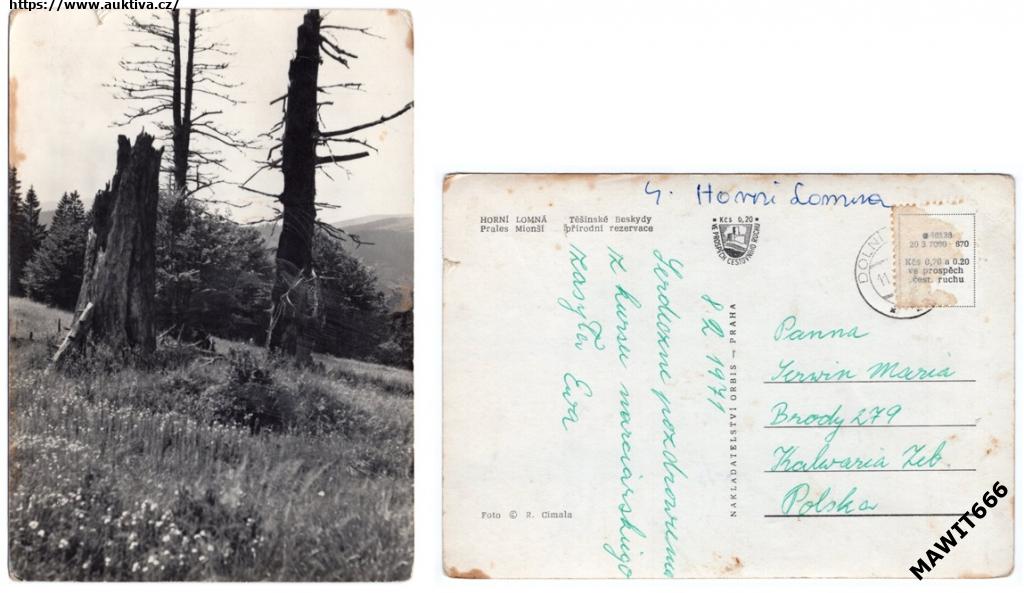 https://www.auktiva.cz/
Horni Lomna
HORNÍ LOMNÁ Těšínské Beskydy
Prales Mionší přírodní rezervace
Kčs 0,20
VE PROSPĚCH CESTOVNÍHO RUCHU
20 3 7090 670
Kčs 0,20 a 0.20
ve prospěch
čest. ruchu
DOLNÍ
11
8.2 1971
Serdeczne pozdrowienia
z kursu narciarskiego
zasyła Ewa
NAKLADATELSTVÍ ORBIS — PRAHA
Panna
Serwin Maria
Brody 279
Kalwaria Zeb.
Polska
Foto © R. Cimala
MAWIT666